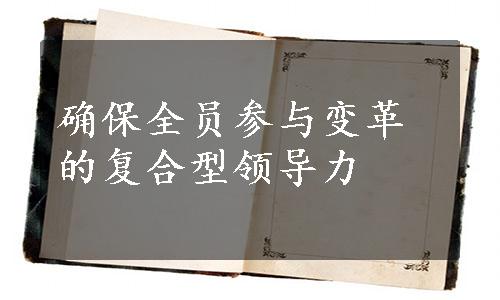 确保全员参与变革
的复合型领导力